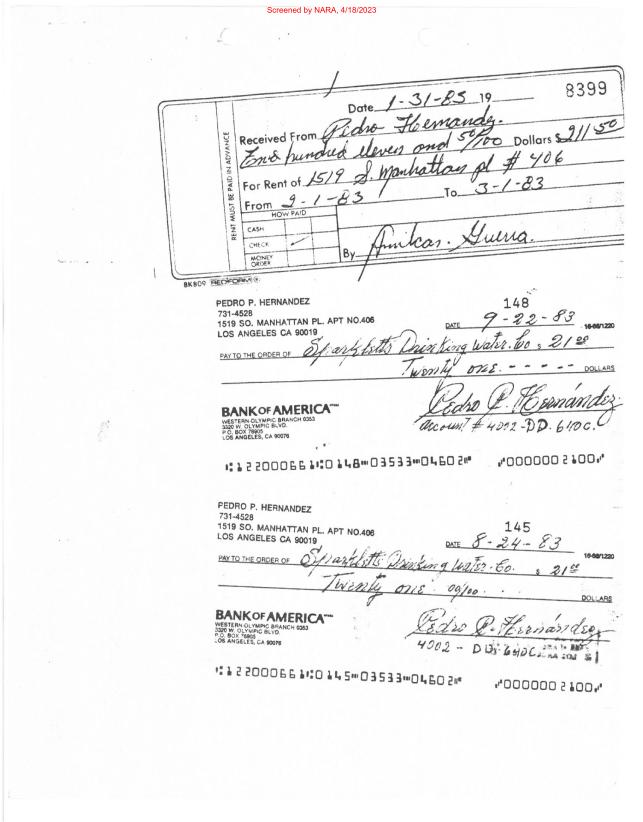 Screened by NARA, 4/18/2023
8399
Date 1-31-83 19
RENT MUST BE PAID IN ADVANCE
Received From Pedro Hernandez.
Two hundred eleven and 50/100 Dollars $ 211 50
For Rent of 1519 S. Manhattan pl # 406
From 2-1-83 To 3-1-83
HOW PAID
CASH
CHECK
MONEY ORDER
By Amilcar. Guerra.
8K809 REDIFORM®
PEDRO P. HERNANDEZ 148
731-4528
1519 SO. MANHATTAN PL. APT NO.406 DATE 9-22-83 16-66/1220
LOS ANGELES CA 90019
PAY TO THE ORDER OF Sparkletts Drinking Water. Co $ 21 00
Twenty one. - - - - - DOLLARS
BANK OF AMERICA
WESTERN OLYMPIC BRANCH 0353
3320 W. OLYMPIC BLVD.
P.O. BOX 76905
LOS ANGELES, CA 90076
Pedro P. Hernández
account # 4002-DD. 640C.
⑆122000661⑆0148⑈03533⑈04602⑈ ⑈0000002100⑈
PEDRO P. HERNANDEZ 145
731-4528
1519 SO. MANHATTAN PL. APT NO.406 DATE 8-24-83 16-66/1220
LOS ANGELES CA 90019
PAY TO THE ORDER OF Sparkletts Drinking Water. Co. $ 21 00
Twenty one 00/100 . . . DOLLARS
BANK OF AMERICA
WESTERN OLYMPIC BRANCH 0353
3320 W. OLYMPIC BLVD.
P.O. BOX 76905
LOS ANGELES, CA 90076
Pedro P. Hernández
4002 - DD. 640C
⑆122000661⑆0145⑈03533⑈04602⑈ ⑈0000002100⑈